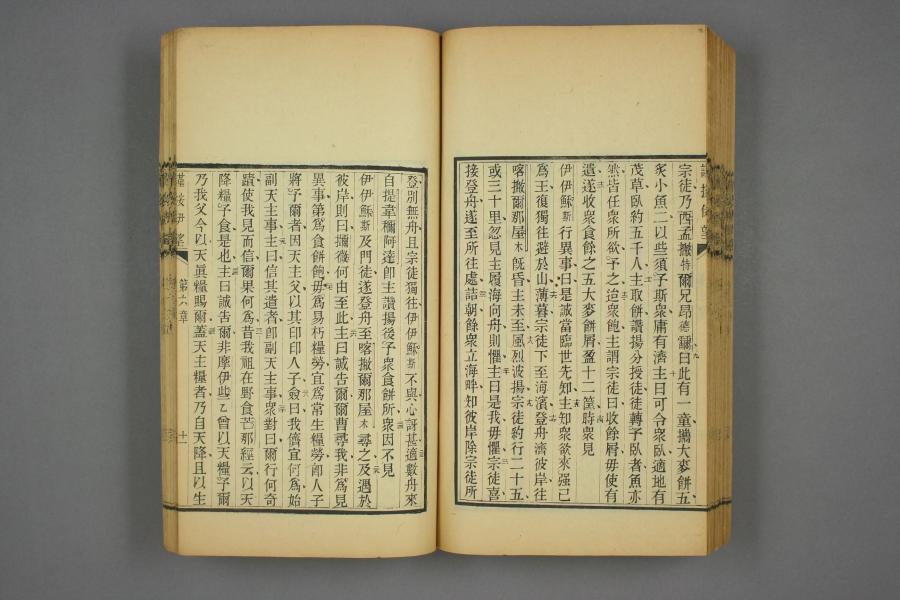 宗徒乃酉孟撇特爾兄昂德肅曰此有一童攜大麥餅五
炙小魚二以些須予斯衆庸有濟主曰可令衆臥適地有
茂草臥約五千人主取餅讚揚分授徒徒轉予臥者魚亦
然皆任衆所欲予之迨衆飽主謂宗徒曰收餘屑毋使有
遺遂收衆食餘之五大麥餅屑盈十二筐時衆見
伊伊穌斯行異事曰是誠當臨世先知主知衆欲來强已
爲王復獨往避於山薄暮宗徒下至海濱登舟濟彼岸往
喀撇爾那屋木旣昏主未至風烈波揚宗徒約行二十五
或三十里忽見主履海向舟則懼主曰是我毋懼宗徒喜
接登舟遂至所往處詰朝餘衆立海畔知彼岸除宗徒所
登別無舟且宗徒獨往伊伊穌斯不與心訝甚適數舟來
自提韋穪阿達卽主讚揚後予衆食餅所衆因不見
伊伊穌斯及門徒遂登舟至喀撇爾那屋木尋之及遇於
彼岸則曰瓓薇何由至此主曰誠告爾爾曹尋我非爲見
異事第爲食餅飽毋爲易朽糧勞宜爲常生糧勞卽人子
將予爾者因天主父以其印印人子僉曰我儕宜何爲始
副天主事主曰信其遣者卽副天主事衆對曰爾行何奇
蹟使我見而信爾果何爲昔我祖在野食芒那經云以天
降糧予食是也主曰誠告爾非摩伊些乙曾以天糧予爾
乃我父今以天眞糧賜爾蓋天主糧者乃自天降且以生
第六章
十一